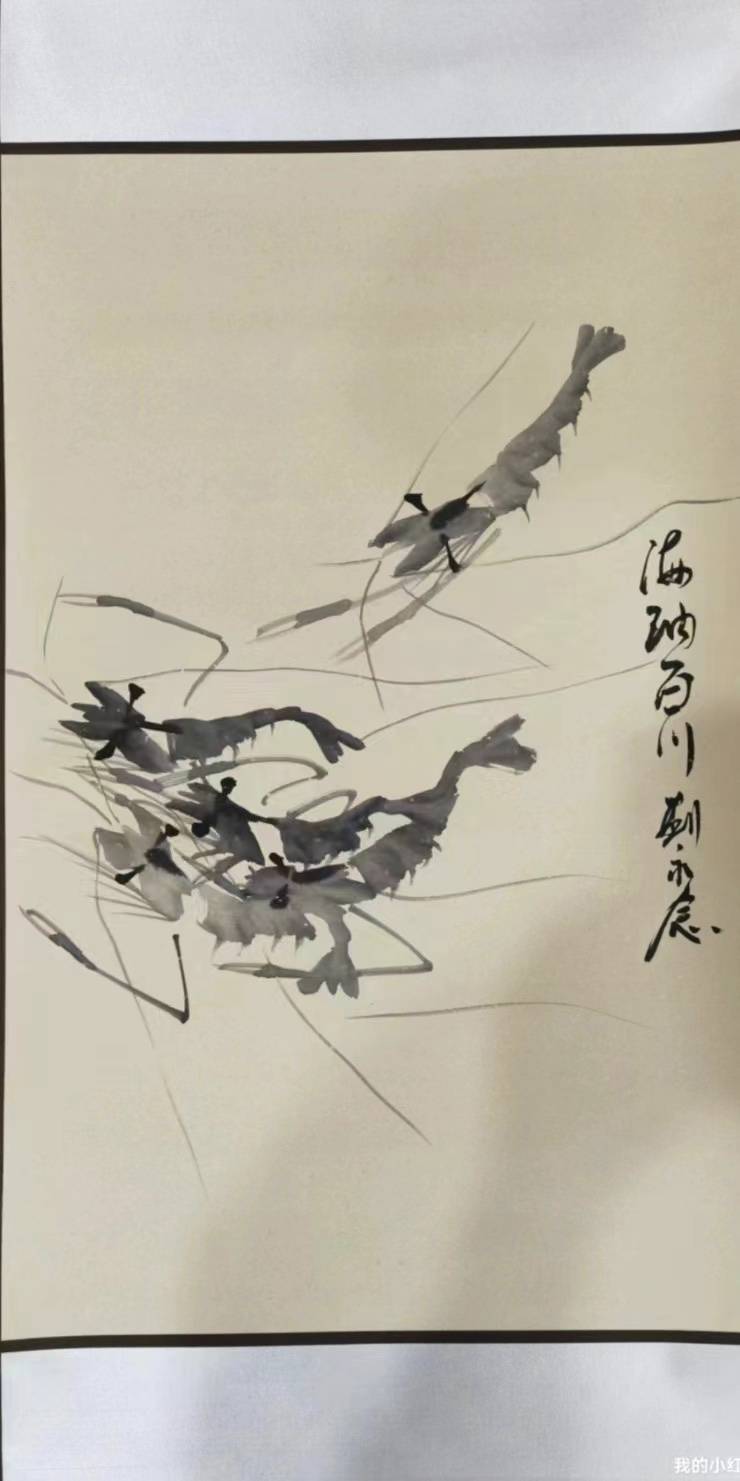 海纳百川 刘永念
我的小红